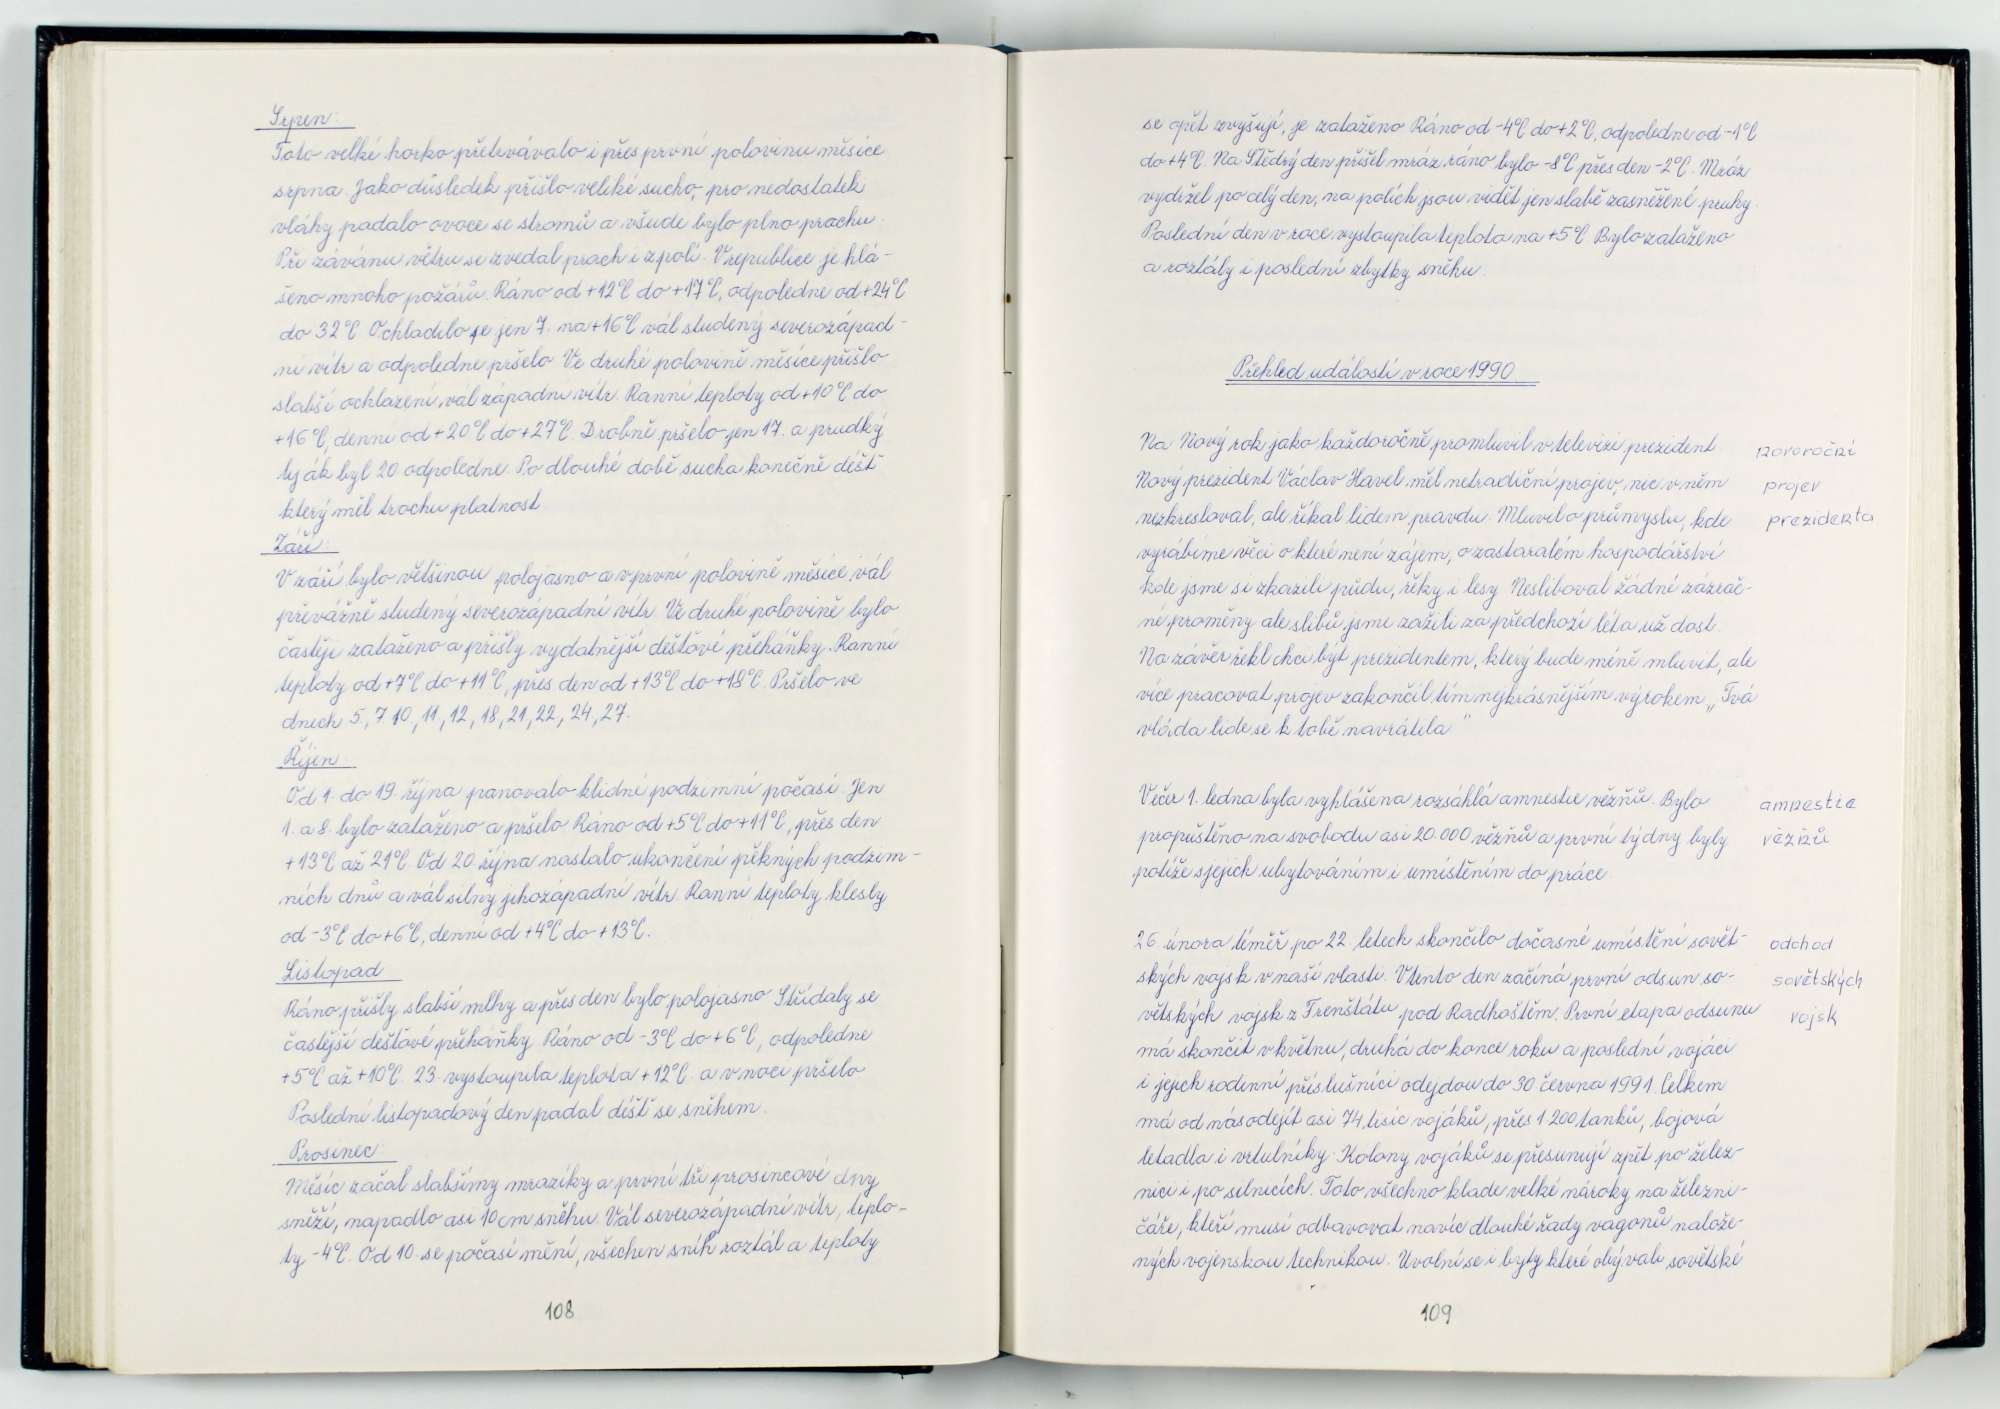 Srpen:
Toto velké horko přetrvávalo i přes první polovinu měsíce
srpna. Jako důsledek přišlo veliké sucho, pro nedostatek
vláhy padalo ovoce se stromů a všude bylo plno prachu.
Při závanu větru se zvedal prach i z polí. V republice je hlá-
šeno mnoho požárů. Ráno od +12°C do +17°C, odpoledne od +24°C
do 32°C. Ochladilo se jen 7. na +16°C vál studený severozápad-
ní vítr a odpoledne pršelo. Ve druhé polovině měsíce přišlo
slabší ochlazení, vál západní vítr. Ranní teploty od +10°C do
+16°C, denní od +20°C do +27°C. Drobně pršelo jen 17. a prudký
liják byl 20 odpoledne. Po dlouhé době sucha konečně déšť
který měl trochu platnost.
Září:
V září bylo většinou polojasno a v první polovině měsíce vál
převážně studený severozápadní vítr. Ve druhé polovině bylo
častěji zataženo a přišly vydatnější dešťové přeháňky. Ranní
teploty od +7°C do +11°C, přes den od +13°C do +18°C. Pršelo ve
dnech 5, 7 10, 11, 12, 18, 21, 22, 24, 27.
Říjen
Od 1. do 19. října panovalo klidné podzimní počasí. Jen
1. a 8. bylo zataženo a pršelo. Ráno od +5°C do +11°C, přes den
+13°C až 21°C. Od 20. října nastalo ukončení pěkných podzim-
ních dnů a vál silný jihozápadní vítr. Ranní teploty klesly
od -3°C do +6°C, denní od +4°C do +13°C.
Listopad
Ráno přišly slabší mlhy a přes den bylo polojasno. Střídaly se
častější dešťové přeháňky. Ráno od -3°C do +6°C, odpoledne
+5°C až +10°C. 23. vystoupila teplota +12°C. a v noci pršelo
Poslední listopadový den padal déšť se sněhem.
Prosinec
Měsíc začal slabšímy mrazíky a první tři prosincové dny
sněží, napadlo asi 10 cm sněhu. Vál severozápadní vítr, teplo-
ty -4°C. Od 10. se počasí mění, všechen sníh roztál a teploty
108
se opět zvyšují, je zataženo Ráno od -4°C do +2°C, odpoledne od -1°C
do +4°C. Na Štědrý den přišel mráz ráno bylo -8°C přes den -2°C. Mráz
vydržel po celý den, na polích jsou vidět jen slabě zasněžené pruhy.
Poslední den v roce vystoupila teplota na +5°C. Bylo zataženo
a roztály i poslední zbytky sněhu.
Přehled událostí v roce 1990
Na Nový rok jako každoročně promluvil v televizi prezident.
novoroční
Nový prezident Václav Havel měl netradiční projev, nic v něm
projev
nezkresloval, ale říkal lidem pravdu. Mluvil o průmyslu, kde
prezidenta
vyrábíme věci o které není zájem, o zastaralém hospodářství
kde jsme si zkazili půdu, řeky i lesy. Nesliboval žádné zázrač-
né proměny ale slibů jsme zažili za předchozí léta už dost.
Na závěr řekl chci být prezidentem, který bude méně mluvit, ale
více pracovat, projev zakončil tím nejkrásnějším výrokem „Tvá
vláda lide se k tobě navrátila"
Večer 1. ledna byla vyhlášena rozsáhlá amnestie vězňů. Bylo
amnestie
propuštěno na svobodu asi 20.000 vězňů a první týdny byly
vězňů
potíže s jejich ubytováním i umístěním do práce.
26 února téměř po 22. letech skončilo dočasné umístění sovět-
odchod
ských vojsk v naší vlasti. V tento den začíná první odsun so-
sovětských
větských vojsk z Frenštátu pod Radhoštěm. První etapa odsunu
vojsk
má skončit v květnu, druhá do konce roku a poslední vojáci
i jejich rodinní příslušníci odejdou do 30 června 1991. Celkem
má od nás odejít asi 74 tisíc vojáků, přes 1 200 tanků, bojová
letadla i vrtulníky. Kolony vojáků se přesunují zpět po želez-
nici i po silnicích. Toto všechno klade velké nároky na železni-
čáře, kteří musí odbavovat navíc dlouhé řady vagonů nalože-
ných vojenskou technikou. Uvolní se i byty které obývali sovětské
109